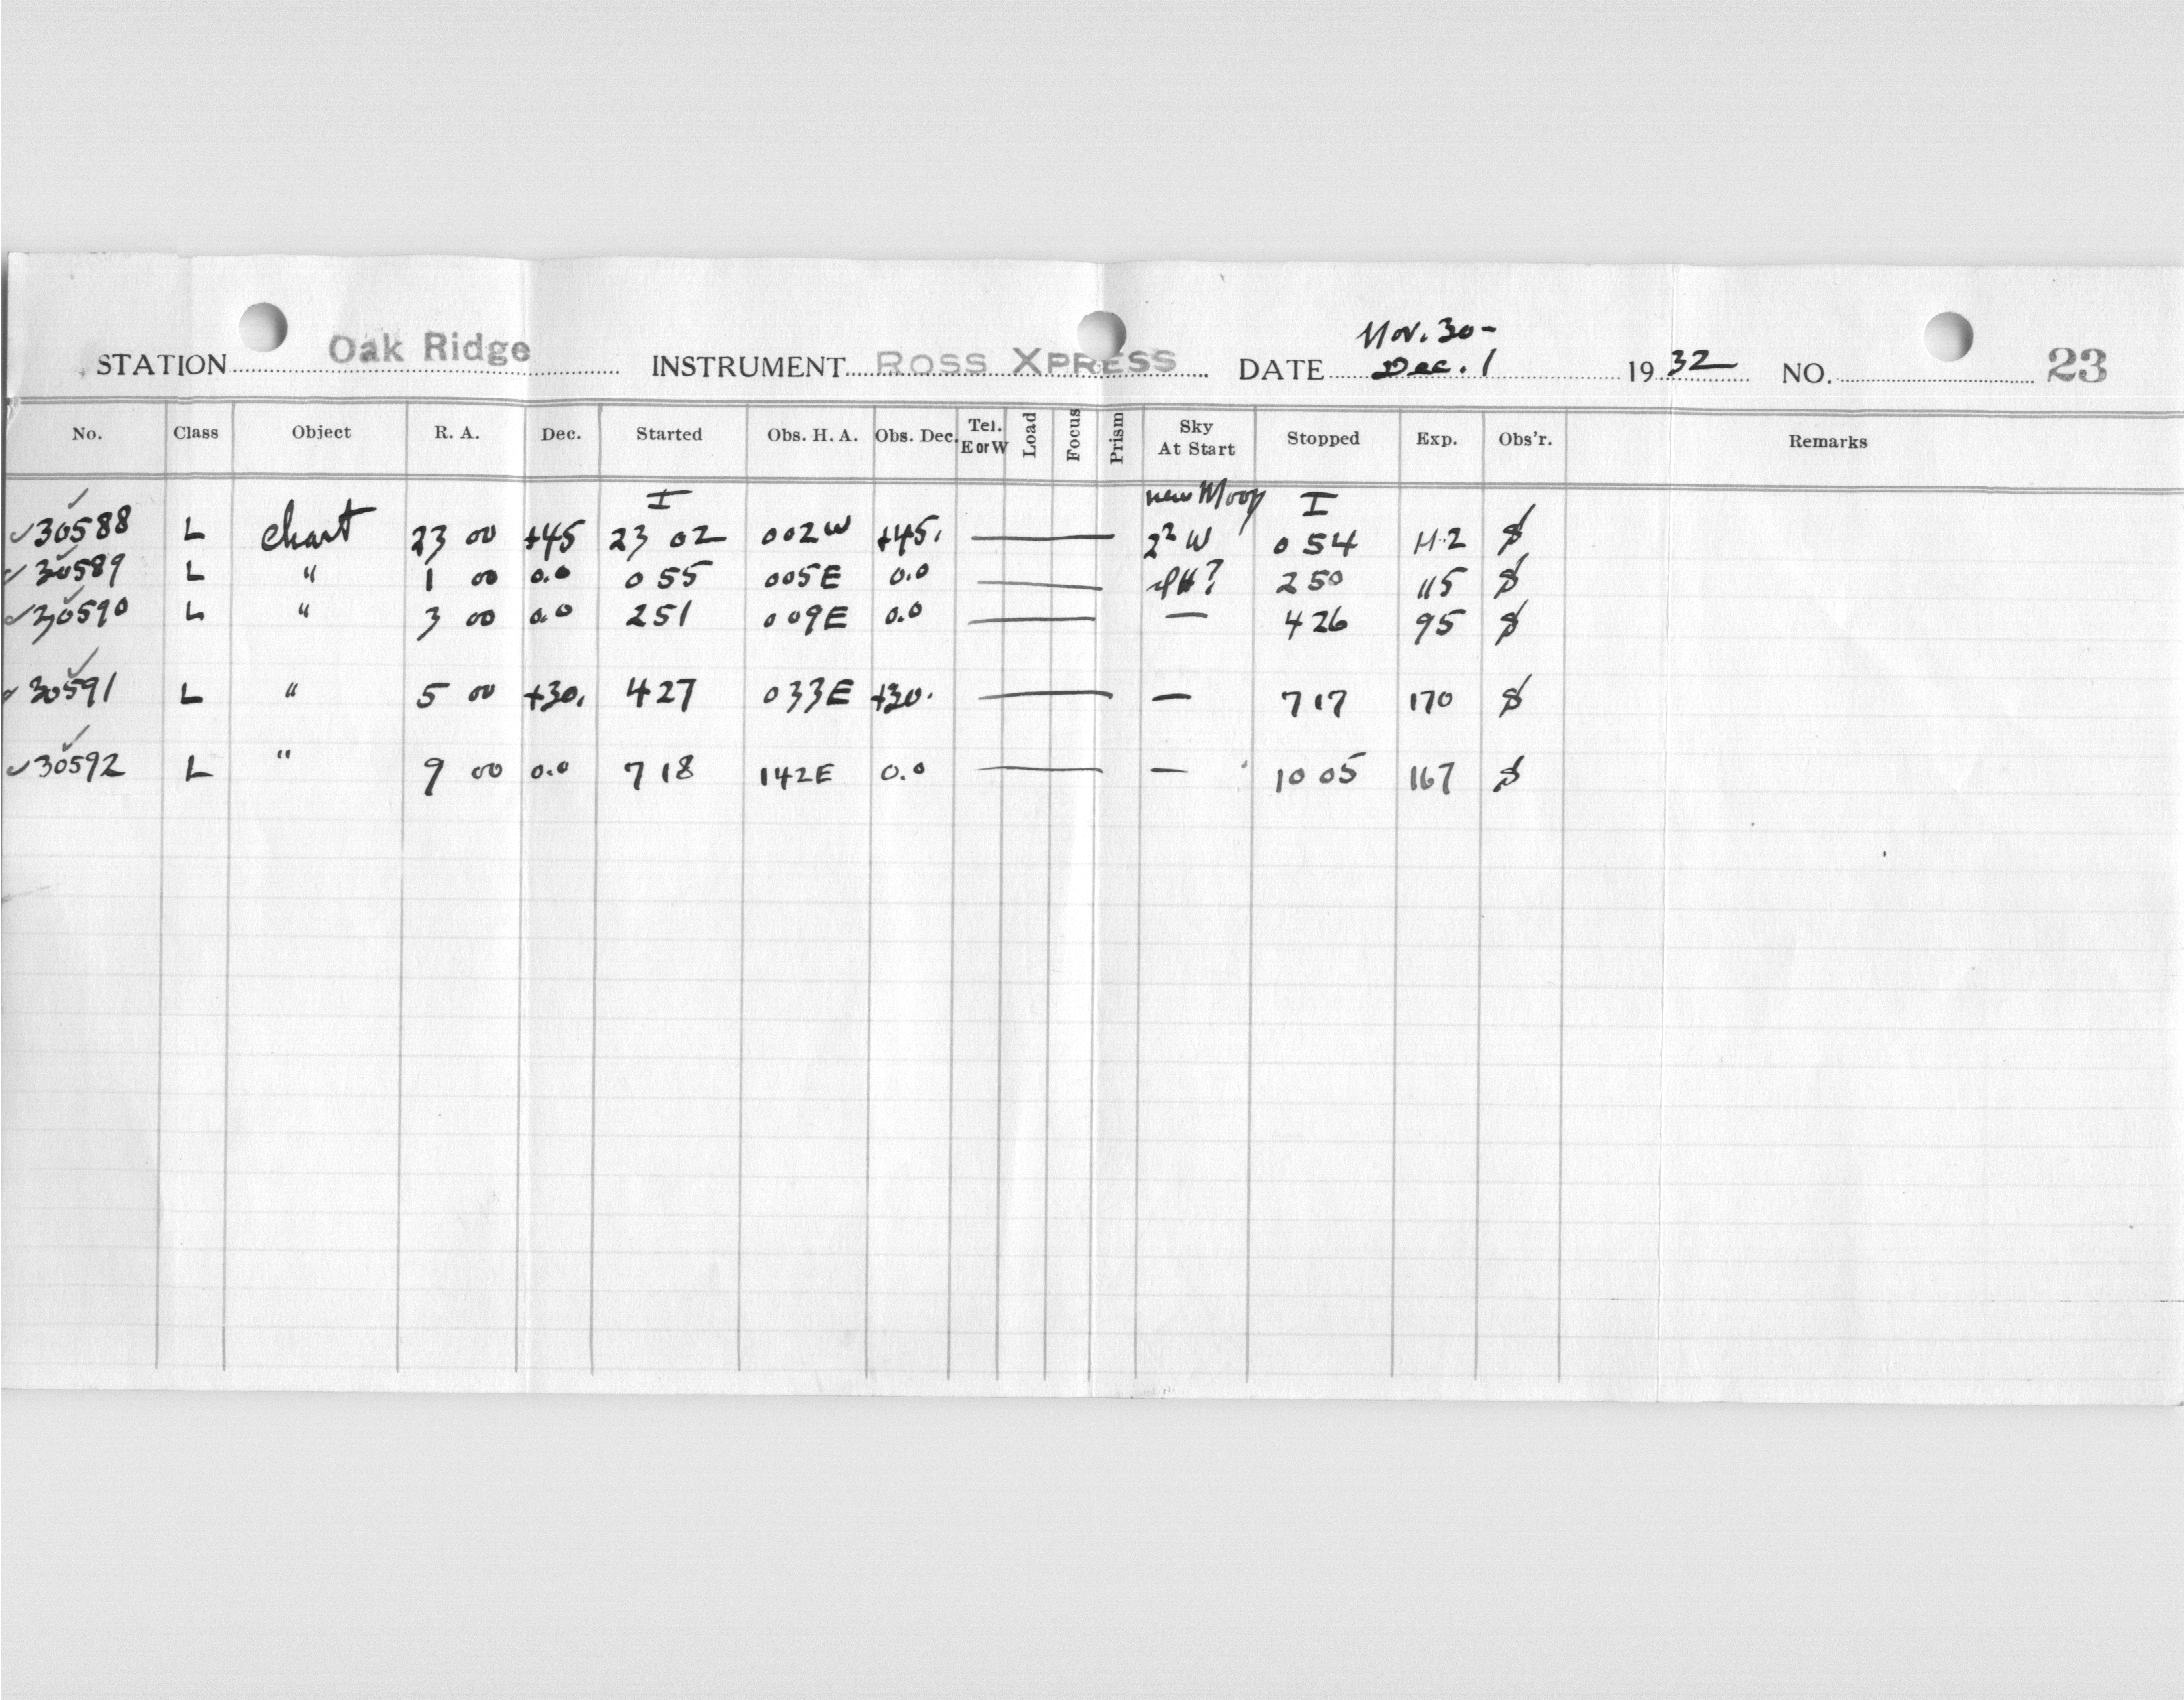 Nov. 30 -
STATION Oak Ridge INSTRUMENT ROSS XPRESS DATE Dec. 1 1932 NO. 23
No. Class Object R. A. Dec. Started Obs. H. A. Obs. Dec. Tel. E or W Load Focus Prism Sky At Start Stopped Exp. Obs'r. Remarks
I new Moon I
✓30588 L chart 23 00 +45 23 02 002W +45. — 2² W 0 54 112
✓30589 L " 1 00 0.0 0 55 005E 0.0 — 2 50 115
✓30590 L " 3 00 0.0 2 51 009E 0.0 — — 4 26 95
✓30591 L " 5 00 +30. 4 27 033E +30. — — 7 17 170
✓30592 L " 9 00 0.0 7 18 142E 0.0 — — 10 05 167